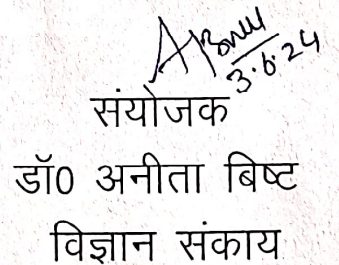 3.6.24
संयोजक
डॉ0 अनीता बिष्ट
विज्ञान संकाय